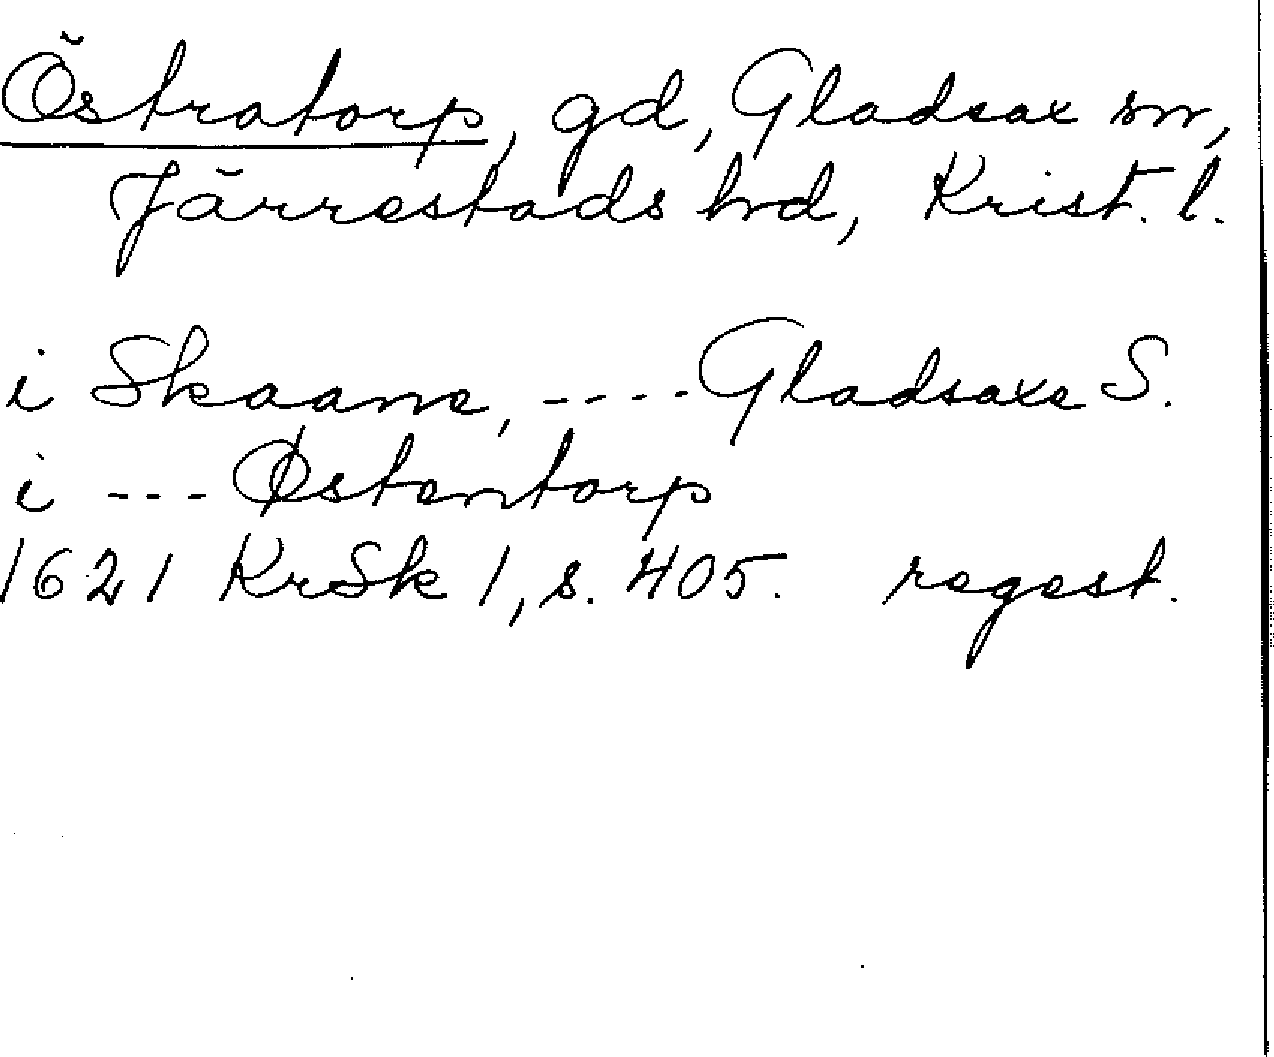 Östratorp, gd, Gladsax sn,
Järrestads hd, Krist. l.
i Skaane, ---- Gladsaxe S.
i --- Østentorp
1621 KrSk 1, s. 405. regest.